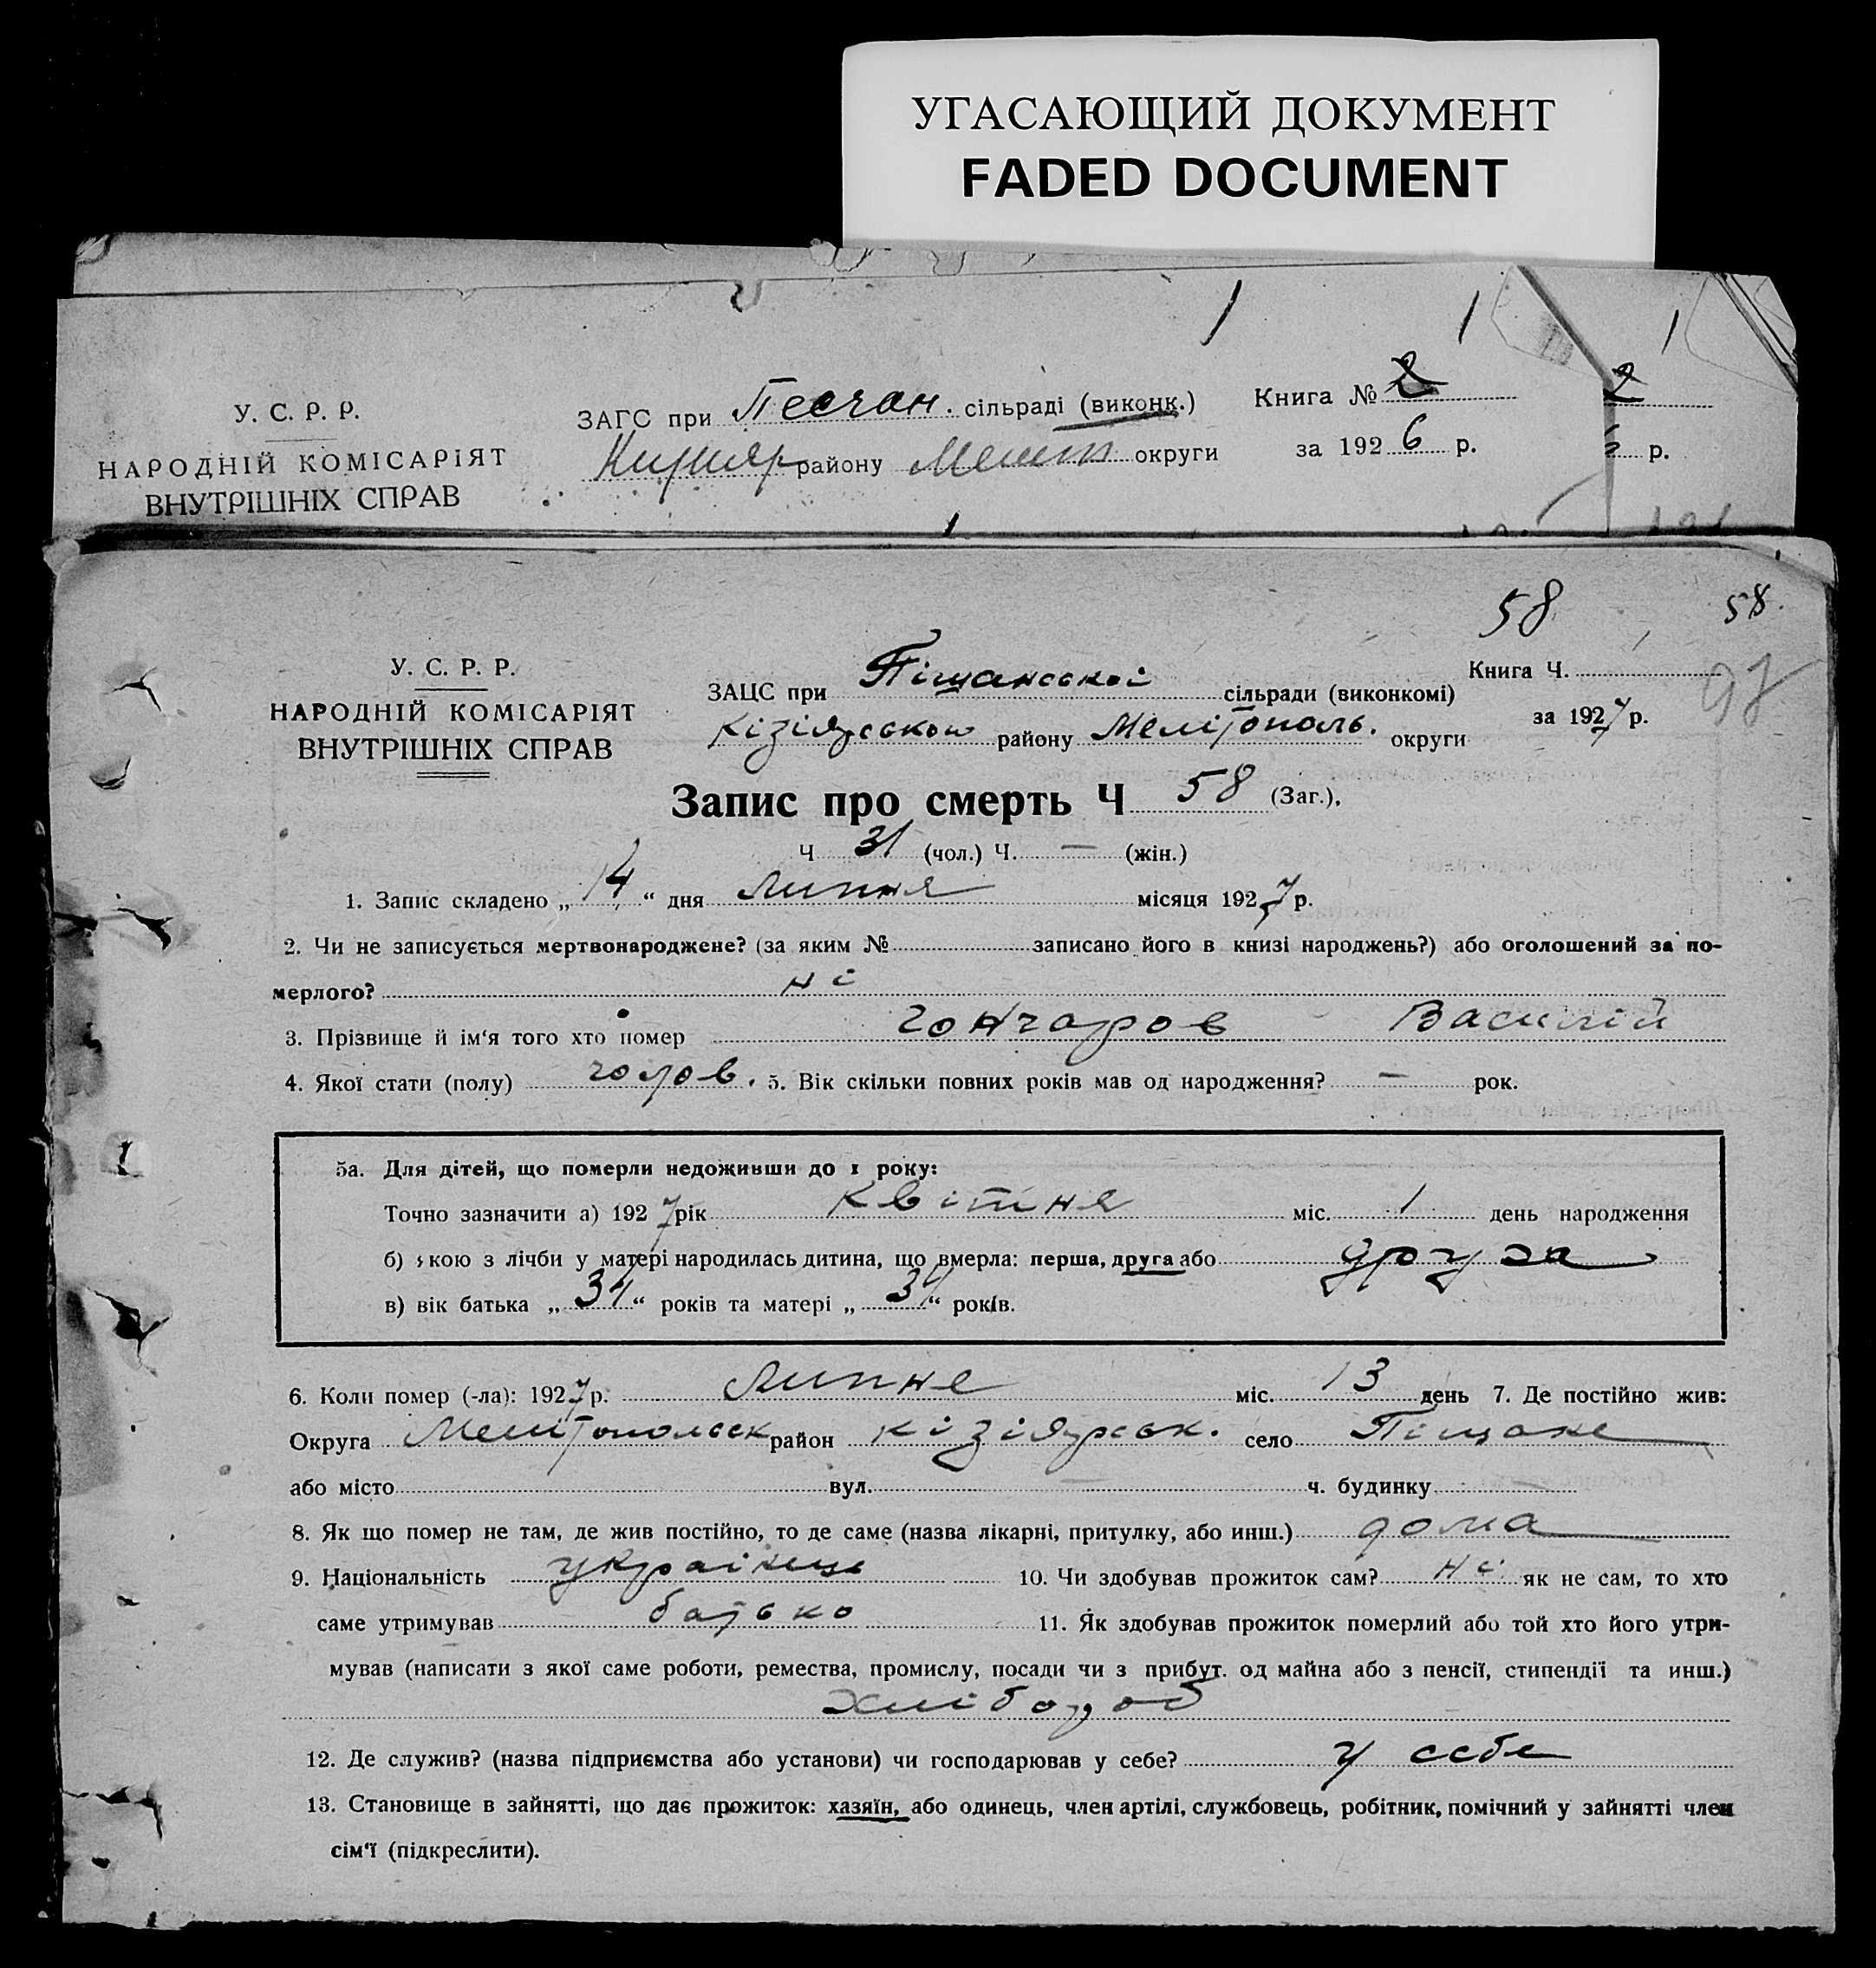 УГАСАЮЩИЙ ДОКУМЕНТ
FADED DOCUMENT
У. С. Р. Р.
НАРОДНІЙ КОМІСАРІЯТ
ВНУТРІШНІХ СПРАВ
ЗАГС при Песчан. сільраді (виконк.)
району Мелит округи
Книга № 2
за 1926 р.
2
р.
58 58.
У. С. Р. Р.
НАРОДНІЙ КОМІСАРІЯТ
ВНУТРІШНІХ СПРАВ
ЗАЦС при Піщанської сільради (виконкомі)
Кізіярського району Мелітополь. округи
Книга Ч.
за 1927 р.
97
Запис про смерть Ч 58 (Заг.),
Ч 31 (чол.) Ч. — (жін.)
1. Запис складено „14“ дня Липня місяця 1927 р.
2. Чи не записується мертвонароджене? (за яким № записано його в книзі народжень?) або оголошений за по-
мерлого? ні
3. Прізвище й ім‘я того хто помер Гончаров Василій
4. Якої стати (полу) чолов. 5. Вік скільки повних років мав од народження? — рок.
5а. Для дітей, що померли недоживши до 1 року:
Точно зазначити а) 1927 рік Квітня міс. 1 день народження
б) якою з лічби у матері народилась дитина, що вмерла: перша, друга або друга
в) вік батька „31“ років та матері „31“ років.
6. Коли помер (-ла): 1927 р. Липня міс. 13 день 7. Де постійно жив:
Округа Мелітопольск район Кізіярськ. село Піщане
або місто вул. — ч. будинку —
8. Як що помер не там, де жив постійно, то де саме (назва лікарні, притулку, або инш.) дома
9. Національність українець 10. Чи здобував прожиток сам? ні як не сам, то хто
саме утримував батько 11. Як здобував прожиток померлий або той хто його утри-
мував (написати з якої саме роботи, ремества, промислу, посади чи з прибут. од майна або з пенсії, стипендії та инш.)
Хлібороб
12. Де служив? (назва підприємства або установи) чи господарював у себе? у себе
13. Становище в зайнятті, що дає прожиток: хазяїн, або одинець, член артілі, службовець, робітник, помічний у зайнятті член
сім‘ї (підкреслити).